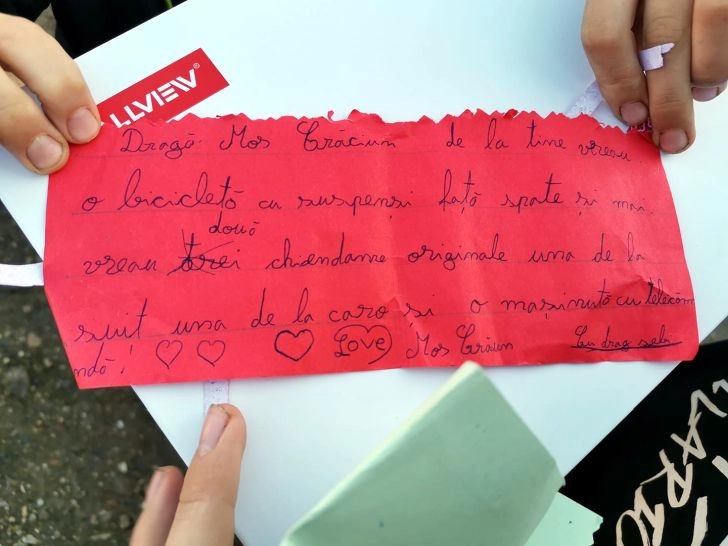 LLVIEW®
Dragă Mos Crăciun de la tine vreau
o bicicletă cu suspensi față spate și mai
două
vreau trei chiendame originale una de la
suit una de la caro și o mașinuță cu telecom
ndă! Love Mos Crăiun Cu drag sebi